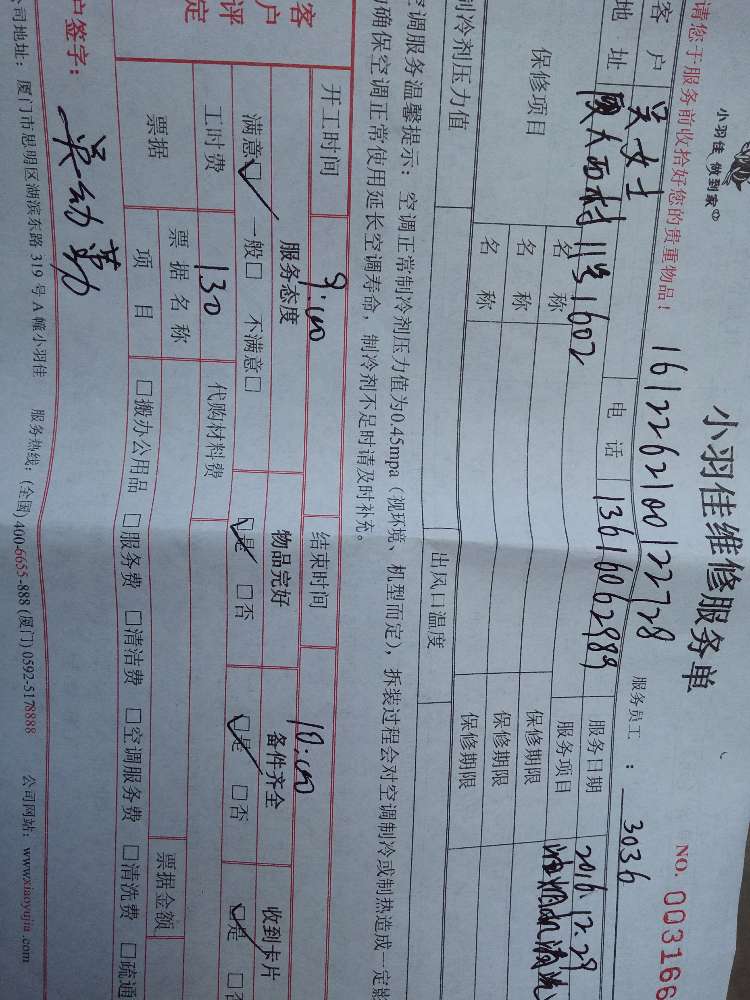 小羽佳 做到家
小羽佳维修服务单
NO. 003166
请您于服务前收拾好您的贵重物品！
1612262100122728
服务员工：3036
客 户 吴女士 电 话 13616062989 服务日期 2016.12.29
地 址 西村 11号1602 服务项目 清洗
保修项目 名 称 保修期限
名 称 保修期限
名 称 保修期限
制冷剂压力值 出风口温度
空调服务温馨提示：空调正常制冷剂压力值为0.45mpa（视环境、机型而定），拆装过程会对空调制冷或制热造成一定影
确保空调正常使用延长空调寿命，制冷剂不足时请及时补充。
开工时间 9:00 结束时间 10:00
客户评定 服务态度 物品完好 备件齐全 收到卡片
满意☑ 一般□ 不满意□ ☑是 □否 ☑是 □否 ☑是 □否
工时费 130 代购材料费
票据 票据名称 票据金额
项 目 □搬办公用品 □服务费 □清洁费 □空调服务费 □清洗费 □疏通
户签字：吴幼勤
公司地址：厦门市思明区湖滨东路 319 号 A 幢小羽佳 服务热线：(全国) 400-6655-888 (厦门) 0592-5178888 公司网站：www.xiaoyujia.com